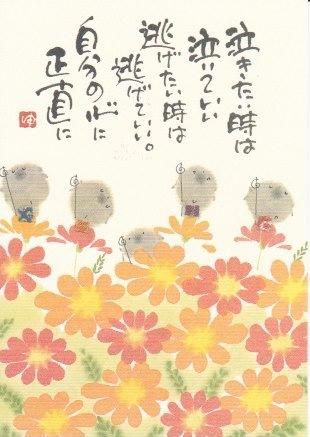 泣きたい時は
泣いていい
逃げたい時は
逃げていい。
自分の心に
正直に
ゆ